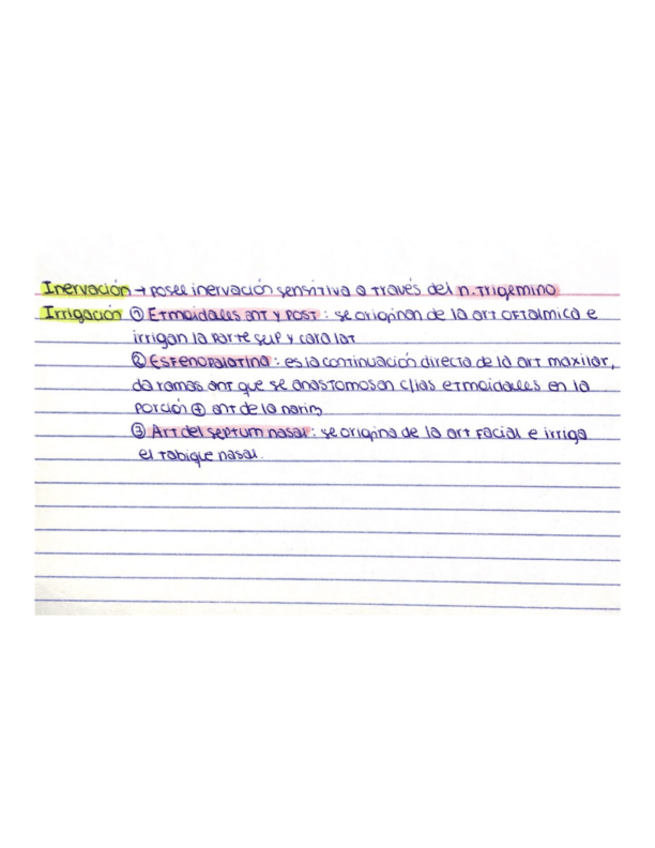 Inervación → posee inervación sensitiva a través del n. Trigemino
Irrigación ① Etmoidales ant y post: se originan de la art oftalmica e
irrigan la parte sup y cara lat
② Esfenopalatina: es la continuación directa de la art maxilar,
da ramas ant que se anastomosan c/las etmoidales en la
porción ⊕ ant de la nariz
③ Art del septum nasal: se origina de la art facial e irriga
el tabique nasal.